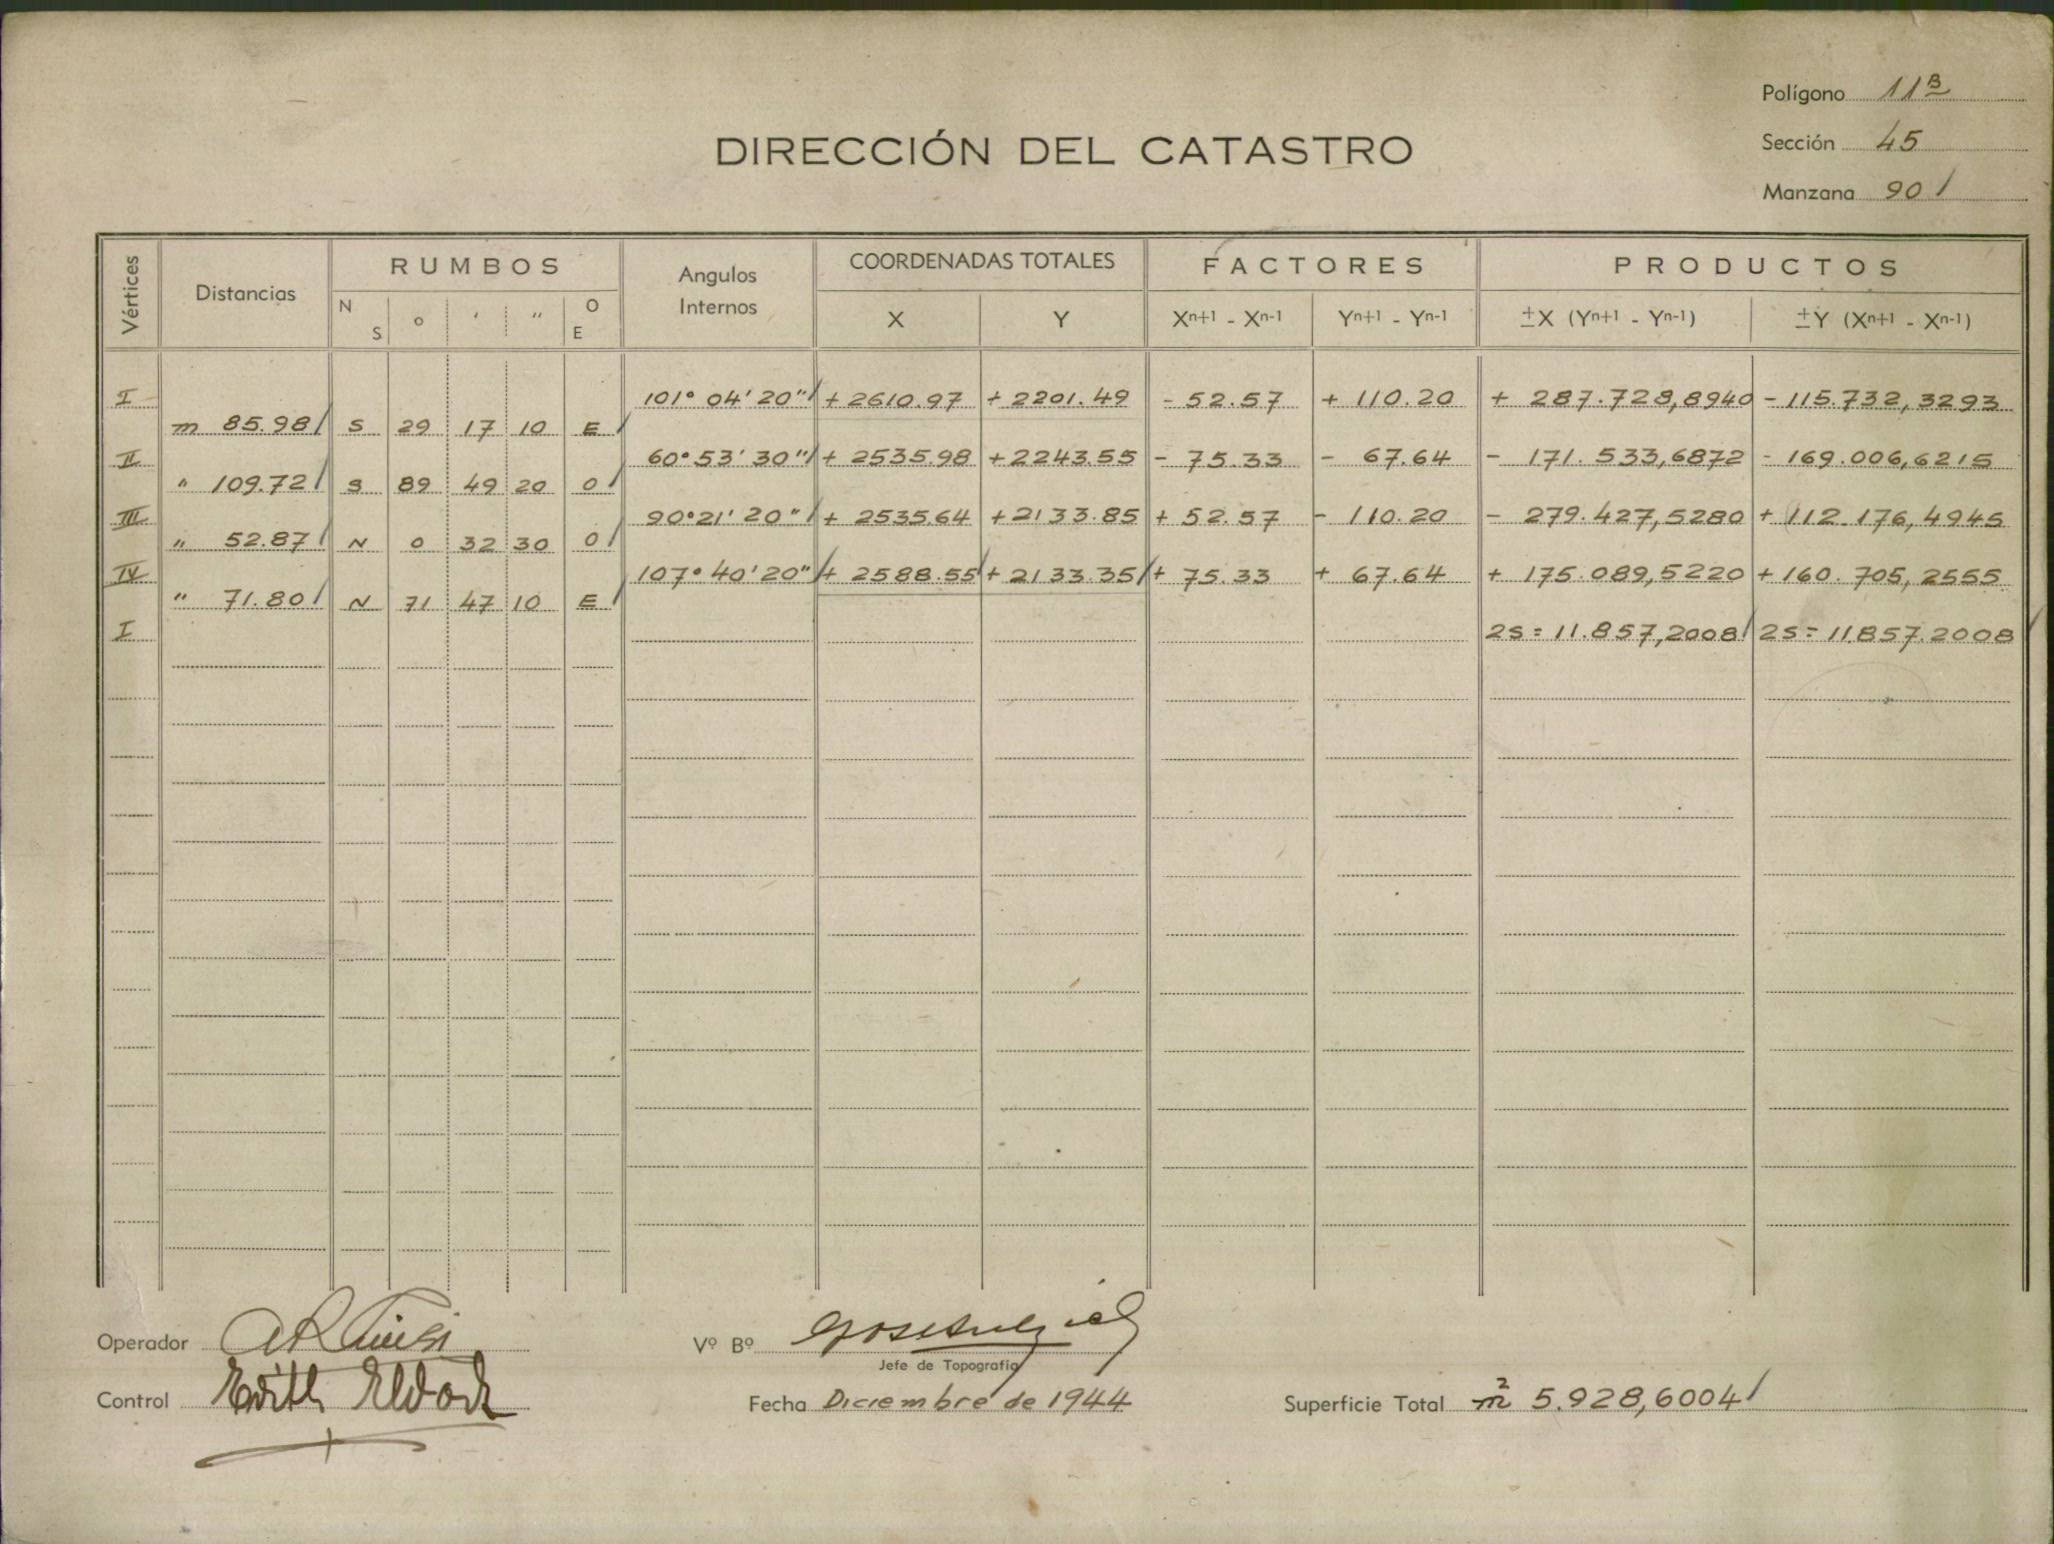 Polígono 11B
Sección 45
Manzana 90
DIRECCIÓN DEL CATASTRO
Vértices Distancias RUMBOS Angulos Internos COORDENADAS TOTALES FACTORES PRODUCTOS
N S o ʹ ʺ O E X Y Xn+1 - Xn-1 Yn+1 - Yn-1 ±X (Yn+1 - Yn-1) ±Y (Xn+1 - Xn-1)
I 101° 04' 20" + 2610.97 + 2201.49 - 52.57 + 110.20 + 287.728,8940 - 115.732,3293
m 85.98 S 29 17 10 E
II 60° 53' 30" + 2535.98 + 2243.55 - 75.33 - 67.64 - 171.533,6872 - 169.006,6215
" 109.72 S 89 49 20 O
III 90° 21' 20" + 2535.64 + 2133.85 + 52.57 - 110.20 - 279.427,5280 + 112.176,4945
" 52.87 N 0 32 30 O
IV 107° 40' 20" + 2588.55 + 2133.35 + 75.33 + 67.64 + 175.089,5220 + 160.705,2555
" 71.80 N 71 47 10 E
I 2S = 11.857,2008 2S = 11.857.2008
Operador
Vº Bº
Jefe de Topografía
Control Edith Eldock
Fecha Diciembre de 1944
Superficie Total m² 5.928,6004